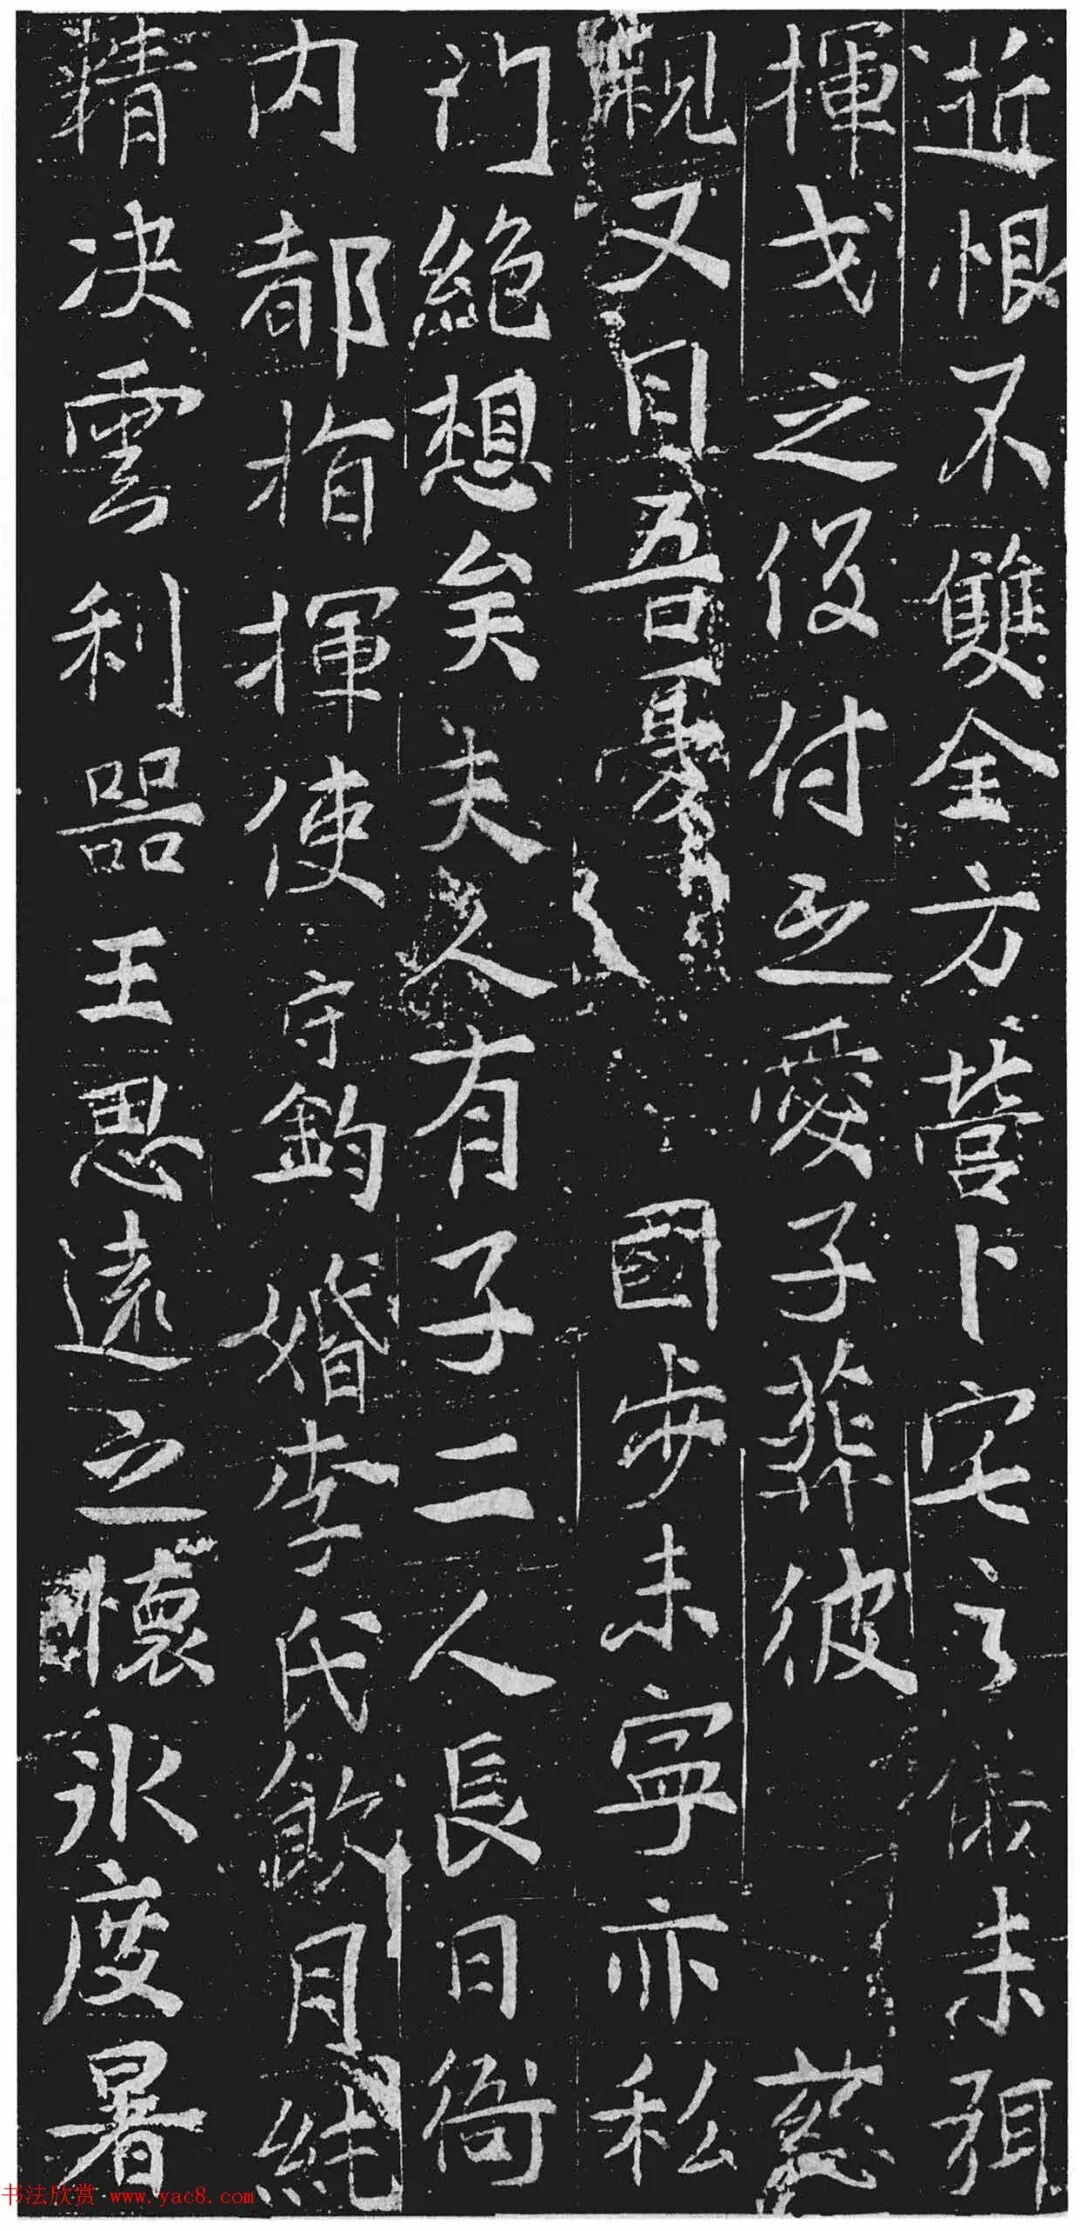 近恨不雙全方營卜宅之儀未弭
揮戈之役付之愛子葬彼 慈
親又目吾 國步未寧亦私
門絕想矣夫人有子二人長曰衙
內都指揮使守鈞婚李氏飲月純
精決雲利器王思遠之懷冰度暑
书法欣赏 www.yac8.com